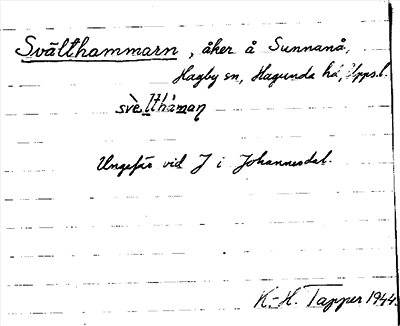 Svälthammarn, åker å Sunnanå,
Hagby sn, Hagunda hd, Upps. l.
svèlthámaɳ
Ungefär vid J i Johannesdal.
K.-H. Tapper 1944.